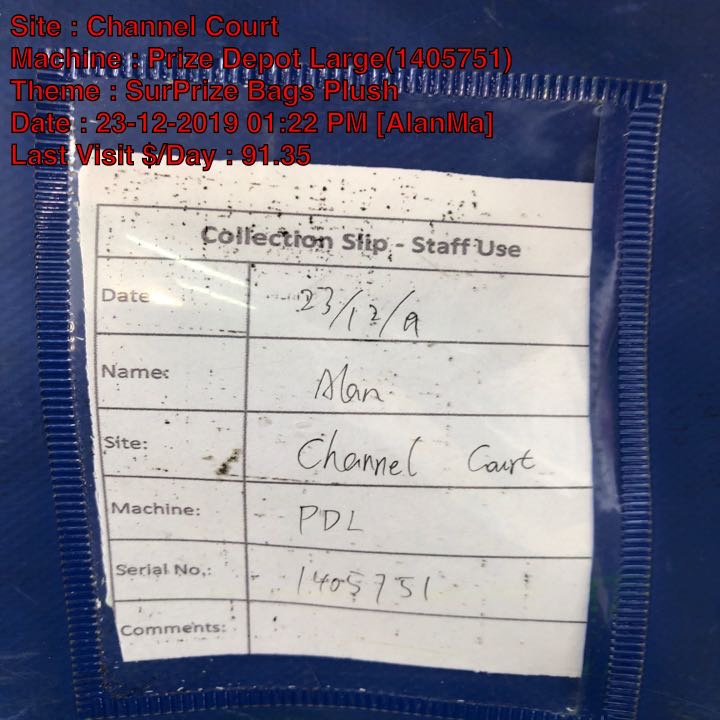 Site : Channel Court
Machine : Prize Depot Large(1405751)
Theme : SurPrize Bags Plush
Date : 23-12-2019 01:22 PM [AlanMa]
Last Visit $/Day : 91.35
Collection Slip - Staff Use
Date 23/12/19
Name: Alan
Site: Channel Court
Machine: PDL
Serial No.: 1405751
Comments: